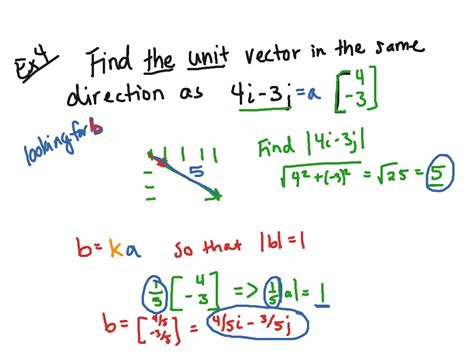 Ex4 Find the unit vector in the same
direction as 4i-3j = a [4 -3]
looking for b
Find |4i-3j|
5
√4²+(-3)² = √25 = 5
b = ka so that |b| = 1
1/5 [4 -3] => 1/5 |a| = 1
b = [4/5 -3/5] = 4/5i - 3/5j